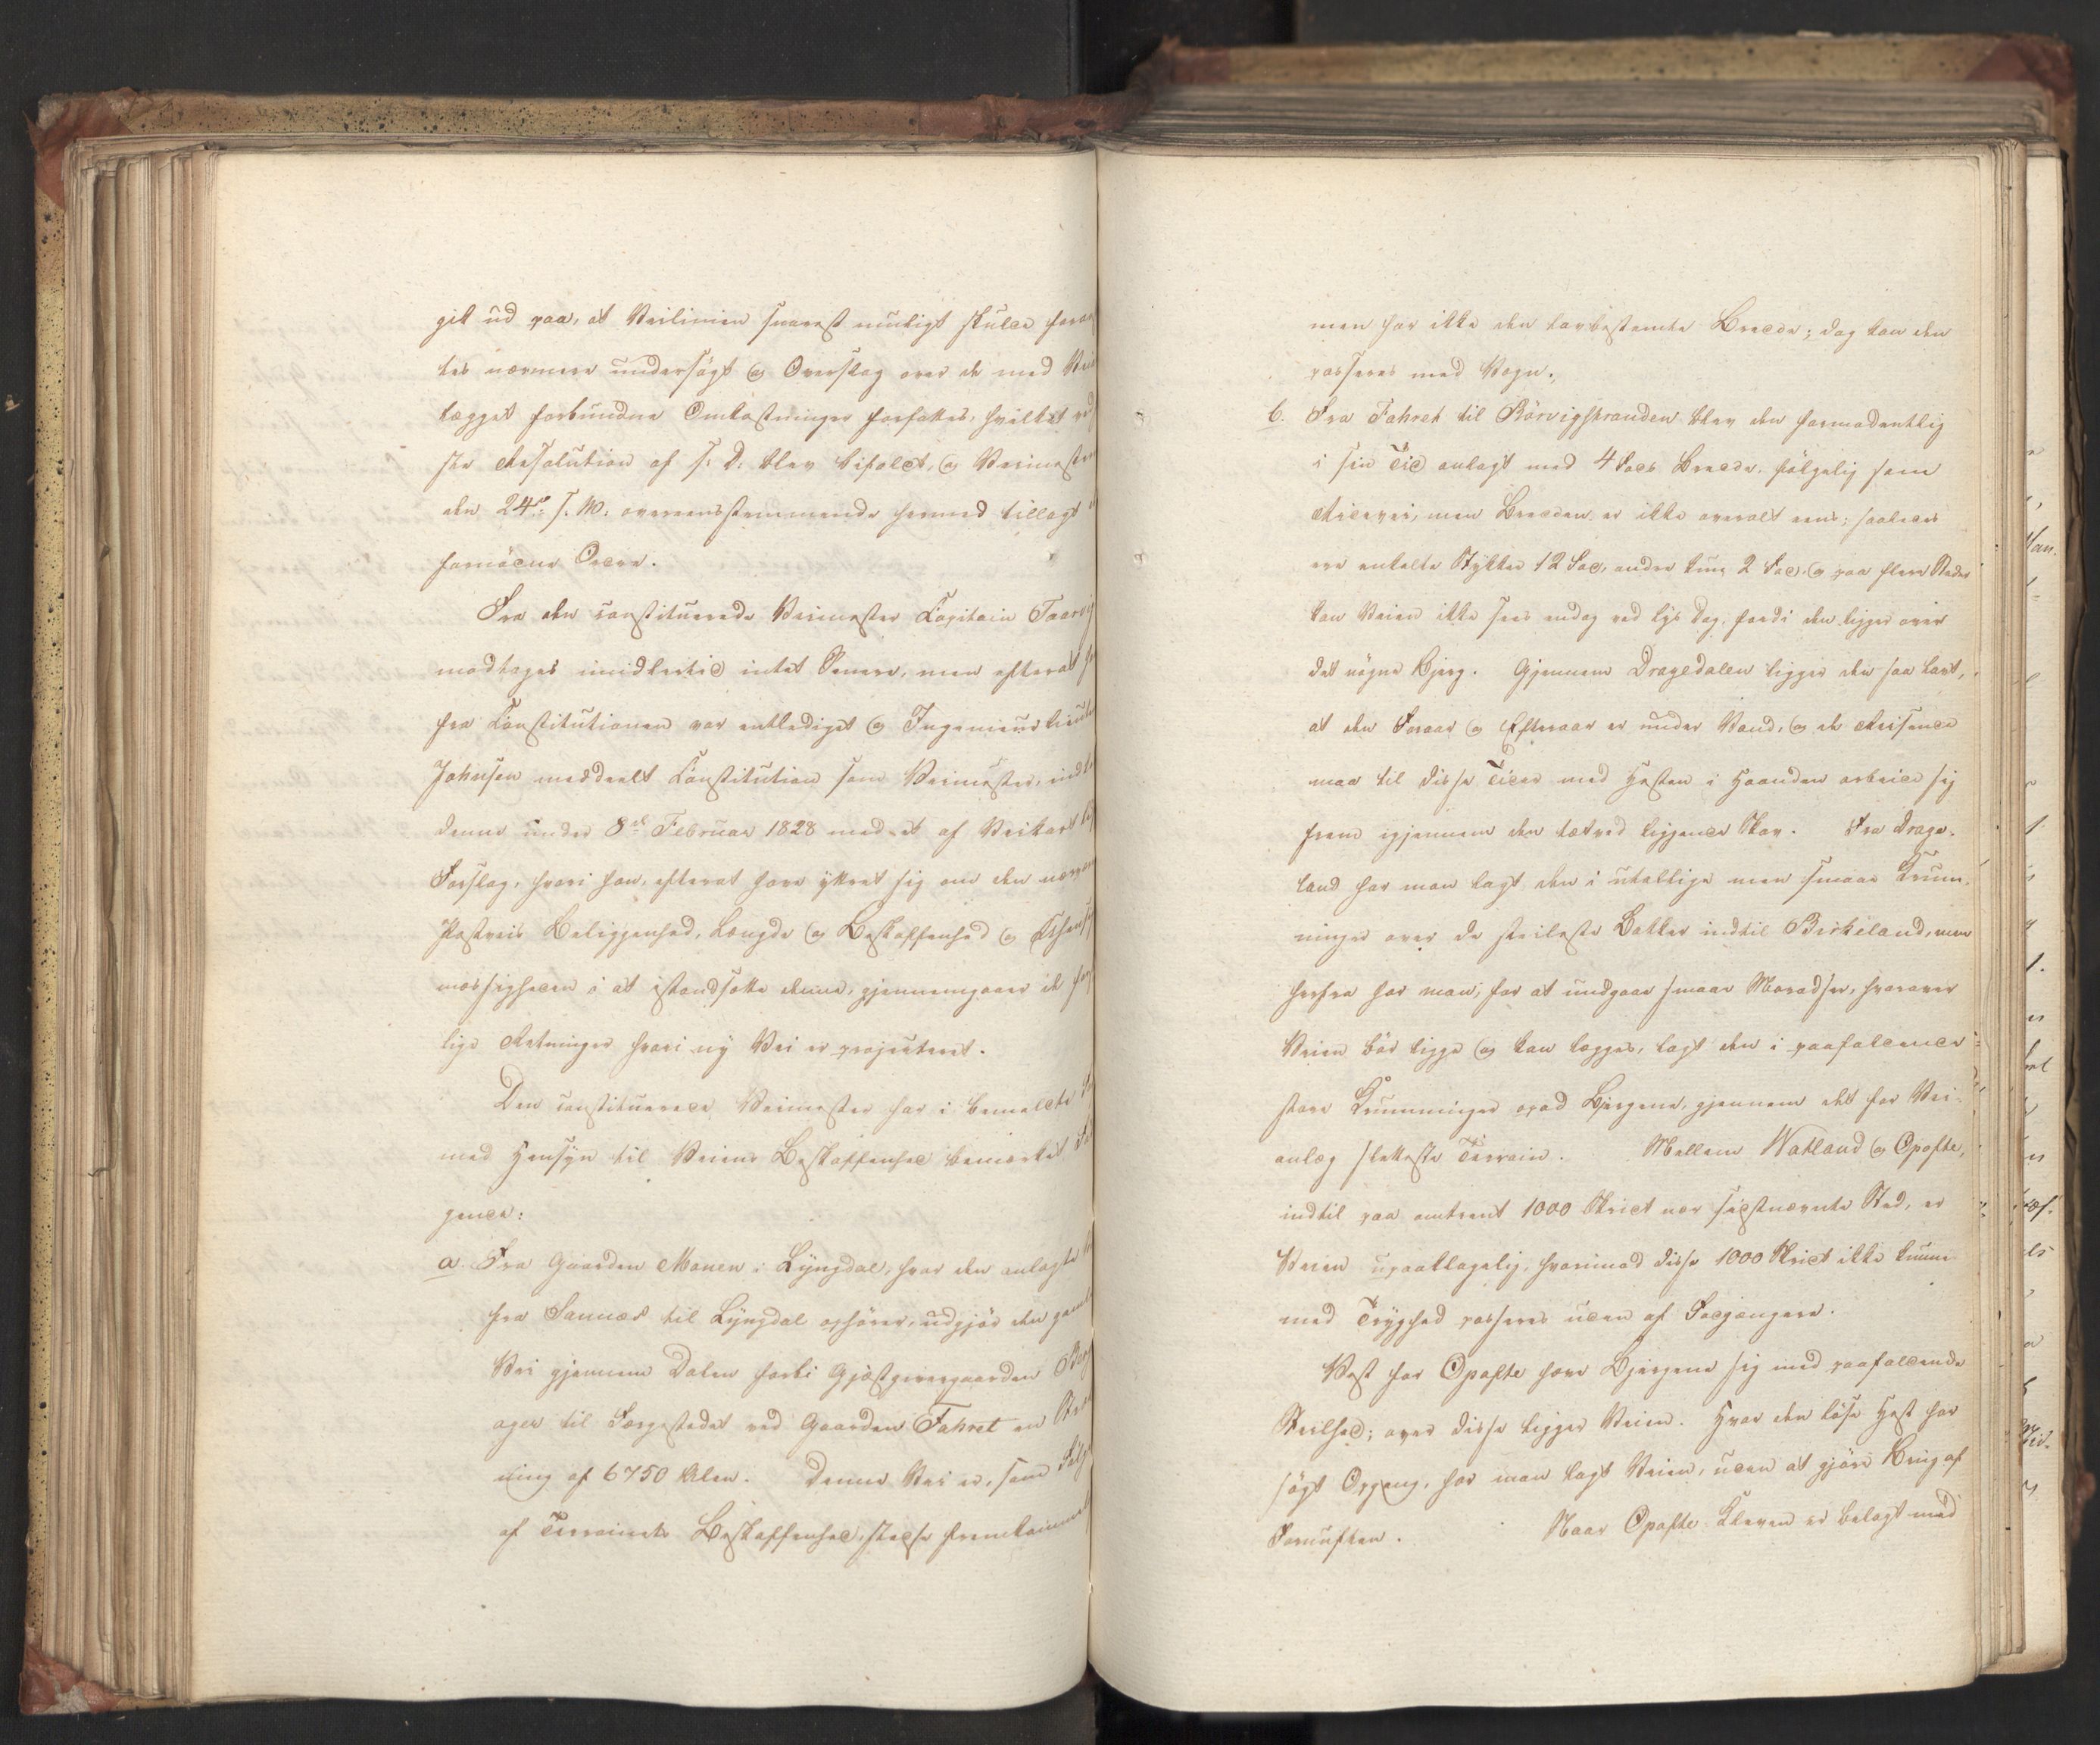 git ud paa, at Veilinien snarest muligt skulde foran
tes nærmere undersögt og Overslag over de med Vei
lægget forbundne Omkostninger forfattes, hvilket ved
ste Resolution af s: D: blev bifaldt, og Veimester
den 24de s. M. overeensstemmende hermed tillagt
fornödne Ordre.
Fra den constituerede Veimester Capitain Taarvig
modtoges imidlertid intet Senere, men efterat
fra Constitutionen var entlediget og Ingenieurlieut
Johnsen meddeelt Constitution som Veimester, ind
denne under 8de Februar 1828 med et af Veikart
Forslag, hvori han, efterat have yttret sig om den nærvæ
Postveis Beliggenhed, Længde og Beskaffenhed og
mæssigheden i at istandsætte denne, gjennemgaaer de for
lige Retninger hvori ny Vei er projecteret.
Den constituerede Veimester har i bemeldte
med Hensyn til Veiens Beskaffenhed bemærket
gende:
a. Fra Gaarden Monen i Lyngdal, hvor den anlagte
fra Sannæs til Lyngdal ophörer, udgjör den gamle
Vei gjennem Dalen forbi Gjæstgivergaarden
ager til Færgestedet ved Gaarden Fahret en
ning af 6750 Alen. Denne Vei er, som Fölge
af Terrainets Beskaffenhed, stedse fremkommel
men har ikke den lovbestemte Bredde; dog kan den
passeres med Vogn.
b. Fra Fahret til Rörvigstranden blev den formodentlig
i sin Tid anlagt med 4 Fods Bredde, fölgelig som
Ridevei, men Bredden er ikke overalt eens; saaledes
ere enkelte Stykker 12 Fod, andre kun 2 Fod, og paa flere Steder
kan Veien ikke sees endog ved lys Dag, fordi den ligger over
det nögne Bjerg. Gjennem Dragedalen ligger den saa lavt,
at den Foraar og Efteraar er under Vand, og de Reisende
maa til disse Tider med Hesten i Haanden arbeide sig
frem igjennem den tætved liggende Skov. Fra Drage-
land har man lagt den i utallige men smaae Krum-
ninger over de steileste Bakker indtil Birkeland, men
herfra har man, for at undgaae smaae Moradser, hvorover
Veien bör ligge og kan lægges, lagt den i paafaldende
store Krumninger opad Bjergene, gjennem det for Vei-
anlæg sletteste Terrain. Mellem Watland og Opofte,
indtil paa omtrent 1000 Skridt nær sidstnævnte Sted, er
Veien upaaklagelig, hvorimod disse 1000 Skridt ikke kunne
med Tryghed passeres uden af Fodgængere.
Vest for Opofte hæve Bjergene sig med paafaldende
Steilhed; over disse ligger Veien. Hvor den löse Hest har
sögt Opgang, har man lagt Veien, uden at gjöre Brug af
Fornuften. Naar Opofte Kleven er belagt med